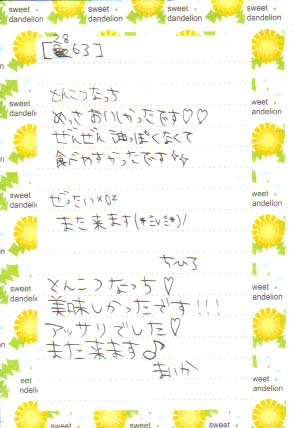 sweet dandelion
sweet dandelion
sweet dandelion
sweet dandelion
28
[63]
とんこつなっち
めっさおいしかったです♡♡
ぜんぜん油っぽくなくて
食べやすかったです
ぜったい×02
また来ます(*≧v≦*)/
ちひろ
とんこつなっち♡
美味しかったです!!!
アッサリでした♡
また来ます♪
まいか
sweet dandelion
sweet dandelion
sweet dandelion
sweet dandelion
sweet dandelion
sweet dandelion